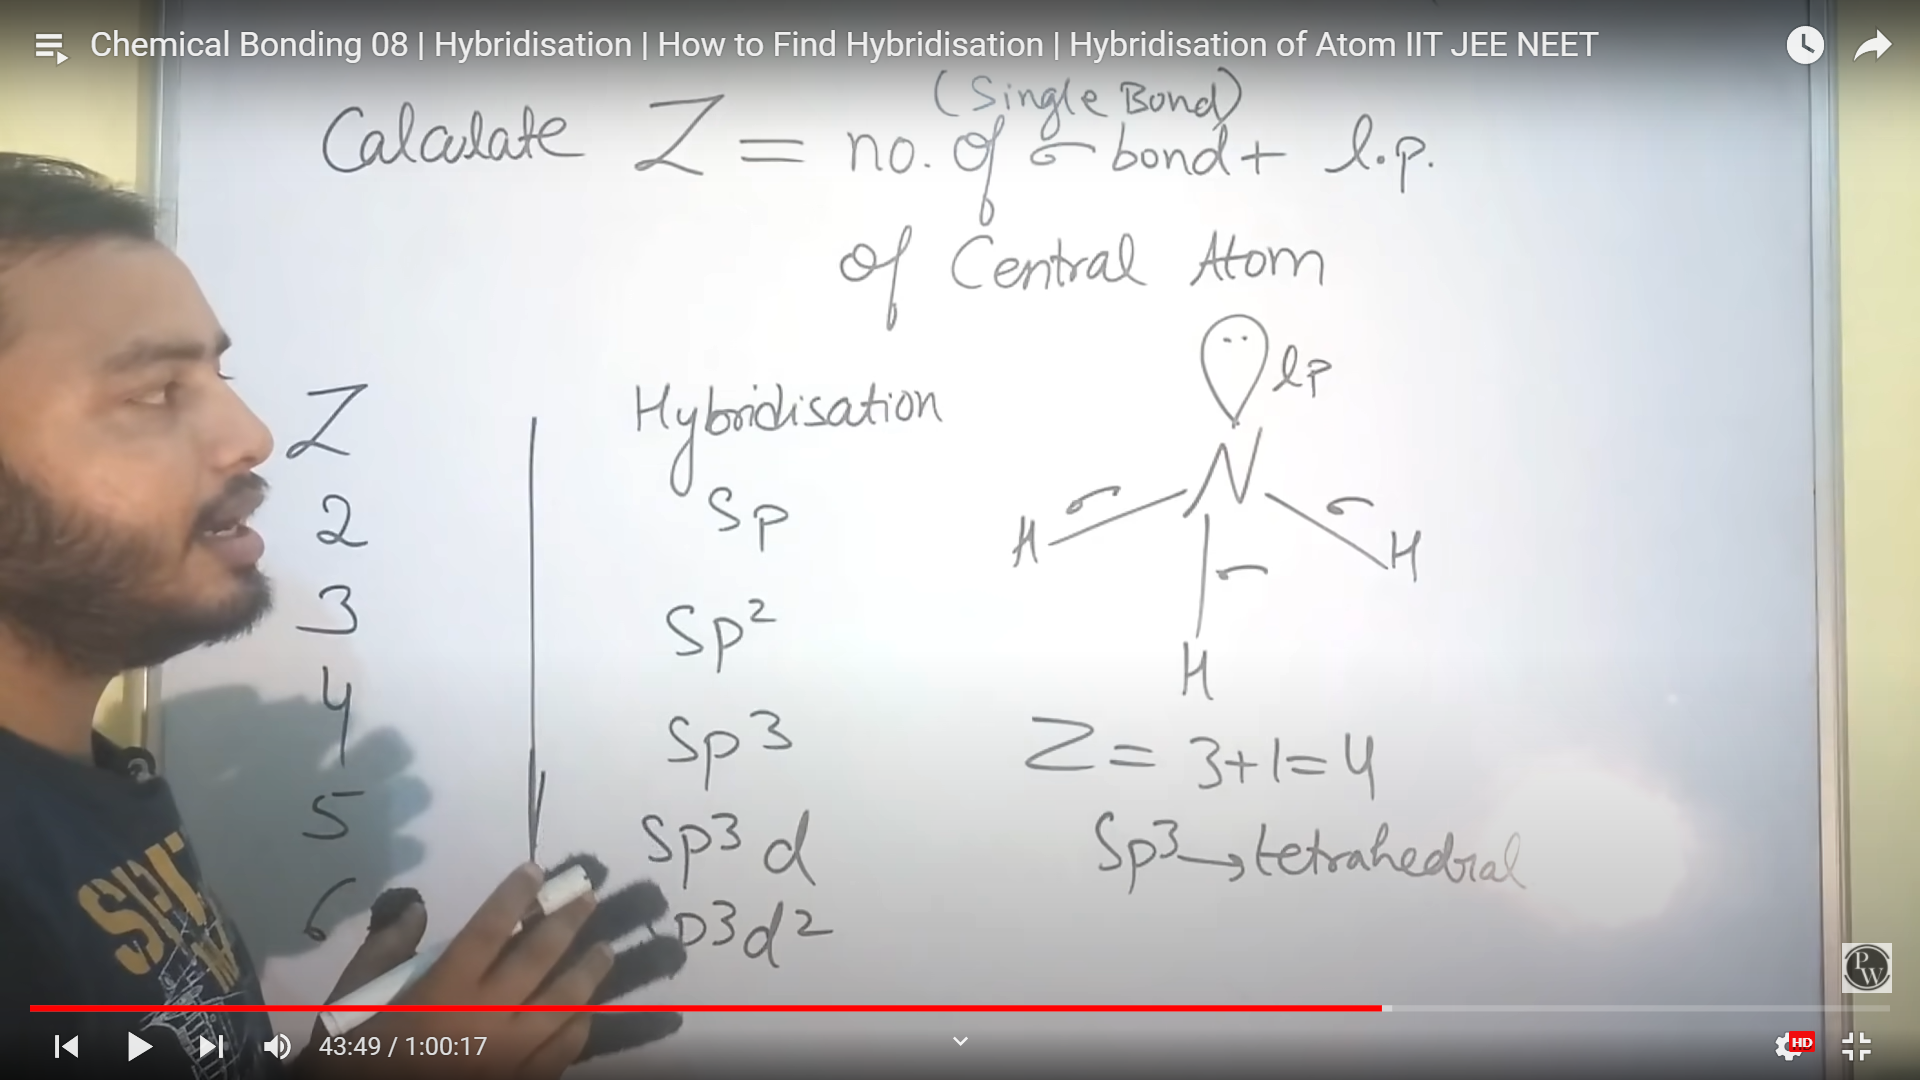 Chemical Bonding 08 | Hybridisation | How to Find Hybridisation | Hybridisation of Atom IIT JEE NEET
(Single Bond)
Calculate Z = no. of σ bond + l.p.
of Central Atom
Z Hybridisation
2 Sp
3 Sp²
4 Sp³
5 Sp³d
6 p³d²
lp
N
H σ σ H
σ
H
Z = 3+1=4
Sp³→tetrahedral
PW
43:49 / 1:00:17
HD